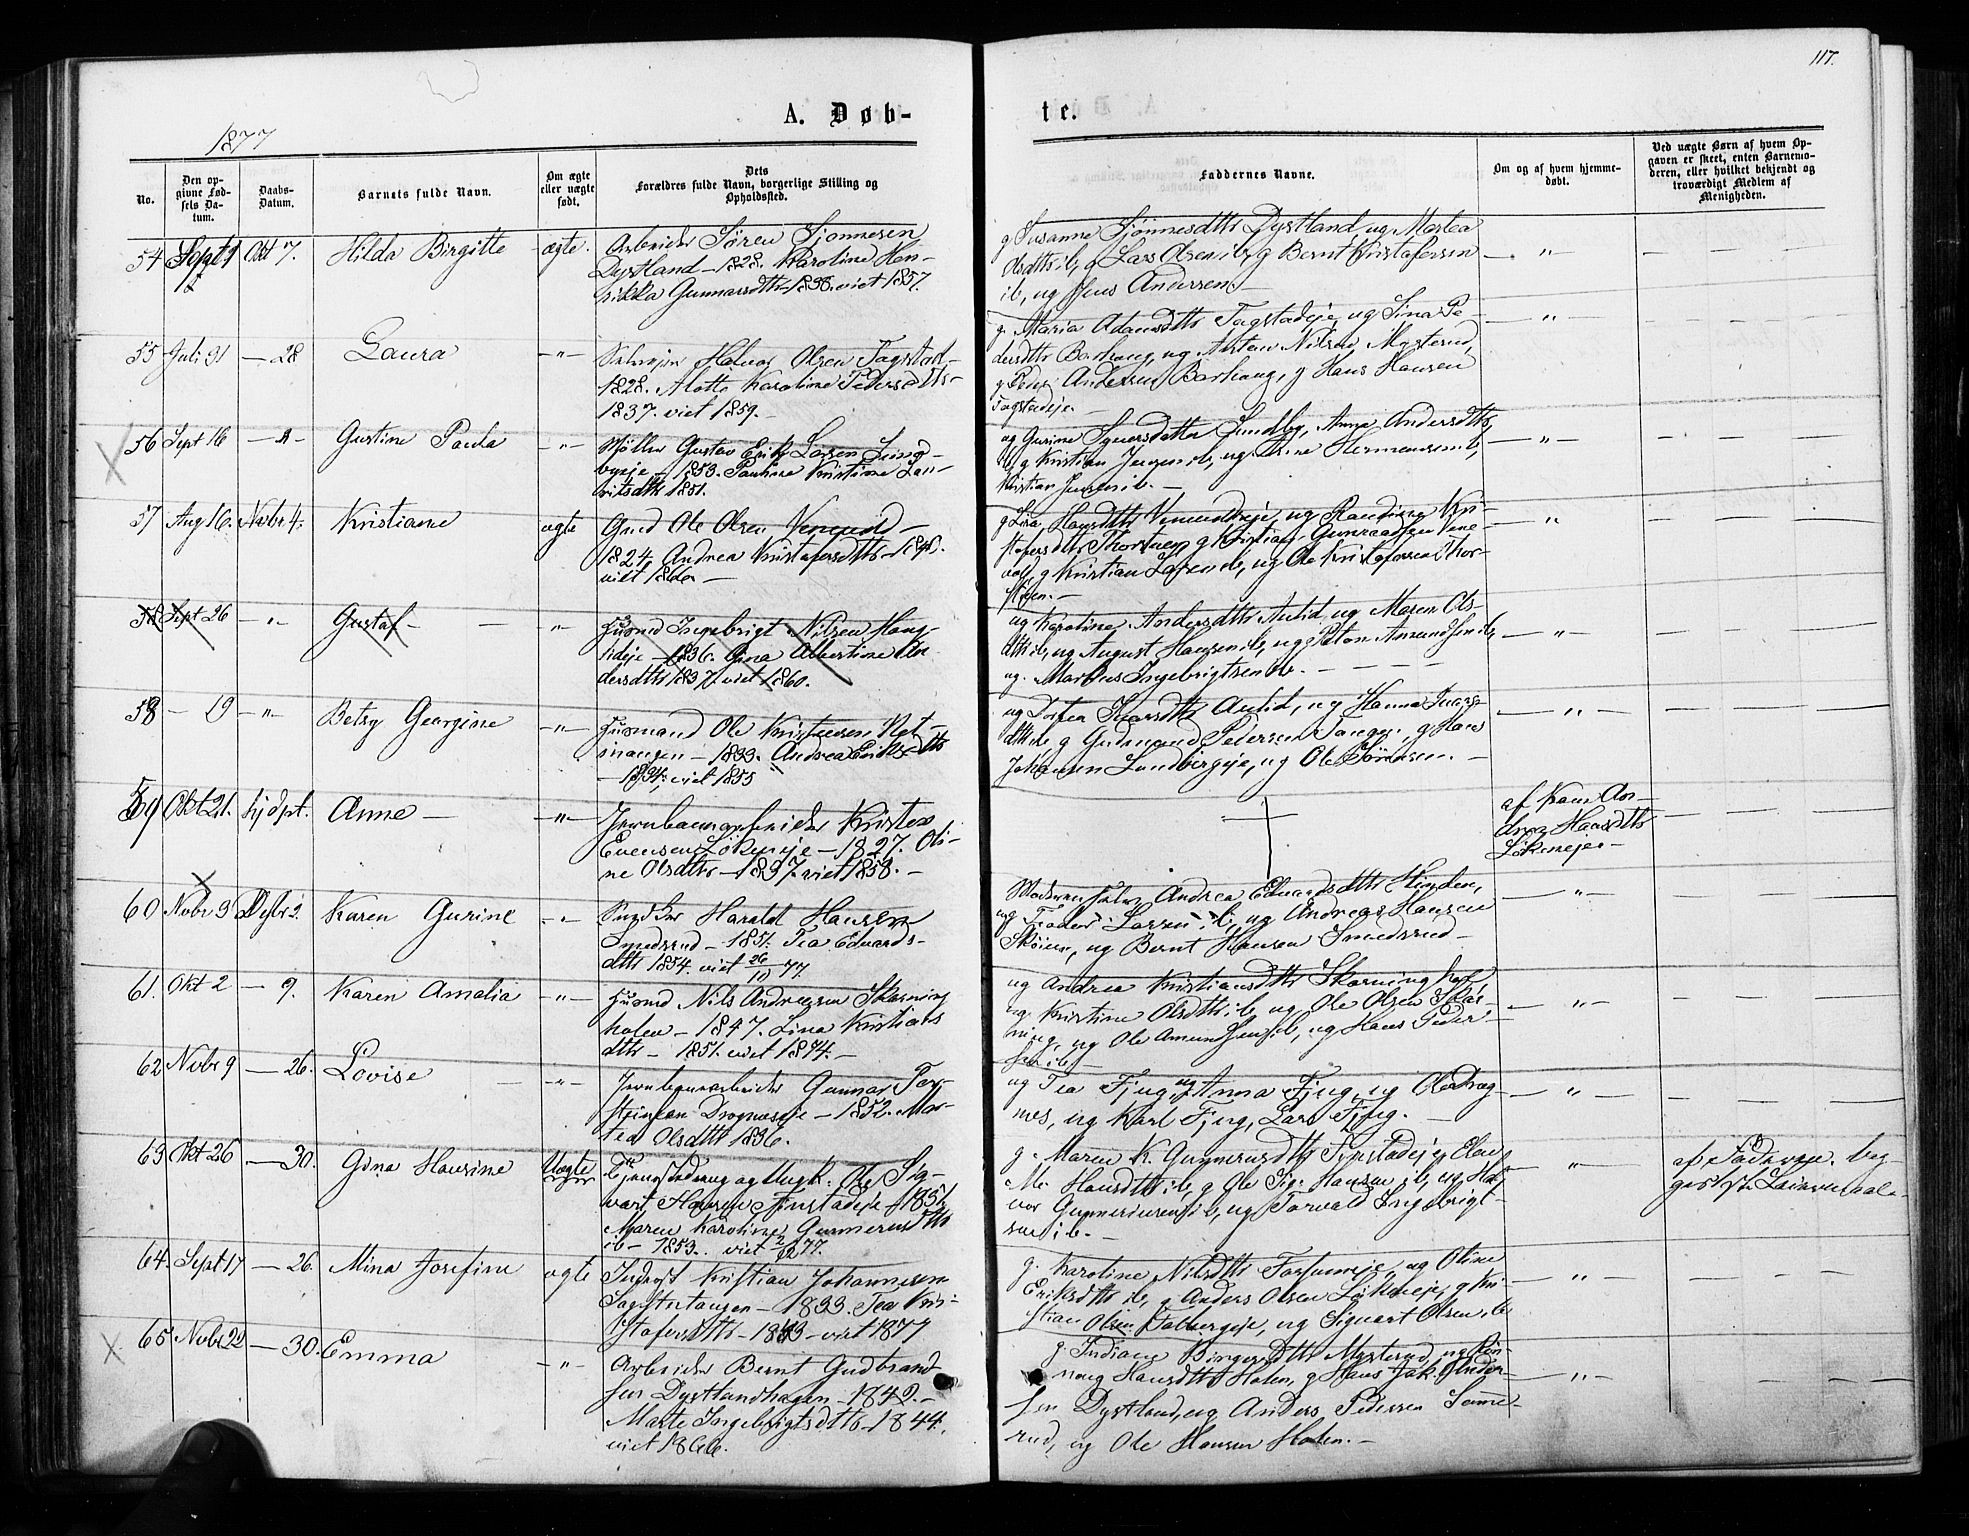 117.
A. Døb-
te.
1877
No.
Den op-
givne Fød-
sels Da-
tum.
Daabs-
Datum.
Barnets fulde Navn.
Om ægte
eller uægte
født.
Dets
Forældres fulde Navn, borgerlige Stilling og
Opholdssted.
Faddernes Navne.
Om og af hvem hjemme-
døbt.
Ved uægte Børn af hvem Op-
gaven er skeet, enten Barnemo-
deren, eller hvilket bekjendt og
troværdigt Medlem af
Menigheden.
54 Sept 1 Okt 7. Hilda Birgitte ægte. Arbeider Søren Sjonnesen
Dystland - 1828. Karoline Hen-
rikka Gunnarsdtr - 1838. viet 1857.
g Susanne Sjønnesdtr Dystland, ug Martea
Olsdtr ib, g Lars Olsen ib, g Bernt Kristofersen
ib, ug Jens Andersen -
55 Juli 31 - 28 Laura - " - Halvor Olsen Fagstad -
1828. Karoline Pedersdtr -
1837. viet 1859. -
g. Maria Adamsdtr Fagstadeje, ug Lina Pe-
dersdtr Barhaug, ug Nilsen Mysterud,
g Peder Andersen Barhaug, g Hans Hansen
Fagstadeje. -
56 Sept 16 - " - Gustine Paula - " - Møller Gustav Erik Larsen Sund-
byeje - 1853. Pauline Kristine Lau-
ritsdtr 1851.
ug Gurine Syversdatter Sundby, Anne Andersdtr
ib, g Kristian Jensen ib, ug Hermansen ib,
Kristian Jensen ib. -
57 Aug 16. Novbr 4. Kristiane ægte Gmd Ole Olsen -
1824, Andrea Kristofersdtr -
viet 1860. -
g Lisa Hansdtr ug Randine Kri-
stofersdtr Thorstuen g Kristian Gunvaldsen
g Kristian Larsen ib, ug Ole Kristofersen Thor-
stuen. -
58 Sept 26 - " - Gustaf - - " - Husmd Ingebrigt Nilsen Haug-
lideje - 1836. Gina Albertine An-
dersdtr 1837. viet 1860.
ug Karoline Andersdtr Aulid, ug Maren Ols-
dtr ib, ug August Hansen ib, ug Amundsen ib,
ug. Markus Ingebrigtsen ib. -
58 - 19 - " - Betsy Georgine - " - Husmand Ole Kristensen
- 1833. Andrea Eriksdtr
- 1834, viet 1855
ug Dortea Ivarsdtr Aulid, ug Hanna Ivars-
dtr ib, g Gudmund Pedersen Tangen, g Hans
Johansen Lundbergeje, ug Ole Sørensen. -
59 Okt 21. hjdpt. Anne - - " - Jernbanearbeider Kristen
Evensen Løkeneje - 1827. Oli-
ne Olsdtr - 1837. viet 1858. -
af Kone An-
drea Hansdtr
Løkeneje -
60 Novbr 3 Desbr 2. Karen Gurine - " - Snedker Harald Hansen
Smedsrud - 1851. Tea Edvards-
dtr 1854. viet 26/10 77
Moderen selv, Andrea Edvardsdtr
ug Teodor Larsen ib, ug Andreas Hansen
Skøien, ug Bernt Hansen Smedsrud -
61. Okt 2 - 9. Karen Amalia - " - Husmd Nils Andreasen Skorning
holen - 1847. Lina Kristians
dtr - 1851. viet 1874. -
ug Andrea Kristiansdtr Skorninghol
ug. Kristine Olsdtr ib, ug Ole Olsen Skor-
ning, ug Ole Amundsen ib, ug Hans Peder-
sen ib -
62 Novbr 9 - 26. Lovise - " - Jernbanearbeider Gunnar Tor-
steinsen Dragnæseje - 1852. Mar-
tea Olsdtr 1836.
ug Tea Fjug, ug Anna Fjug, ug Ole Drag-
næs, ug Karl Fjug, Lars Fjug. -
63 Okt 26 - 30. Gina Hansine Uægte Tjenestedreng ag Ungk. Ole Sig-
vart Hansen Finstadeje - 1851
Maren Karoline Gunnerusdtr
ib - 1853. viet 2/12 77.
g. Maren K. Gunnerusdtr Finstadeje,
M. Hansdtr ib, g Ole Sig. Hansen ib, ug Hal
vor Gunneriusen ib, ug Torvald Ingebrigt-
sen ib. -
af Faderen.
64. Sept 17 - 26. Mina Josefine ægte Inderst Kristian Johannesen
Sagstutangen - 1833. Tea Kri-
stofersdtr - 1843 - viet 1877
g. Karoline Nilsdtr ug Oline
Eriksdtr ib, g Anders Olsen Løkeneje, g Kri
stian Olsen ug Sigvart Olsen ib
65 Novbr 22 - 30. Emma - " - Arbeider Bernt Gudbrand
sen Dystlandhagen - 1842. -
Marte Ingebrigtsdtr - 1844.
viet 1866.
g. Indiane Bingersdtr Mysterud, ug Rön-
naug Hansdtr Holen, g Hans Jak. Ander-
sen Dystland, ug Anders Pedersen
rud, ug Ole Hansen Holen. -